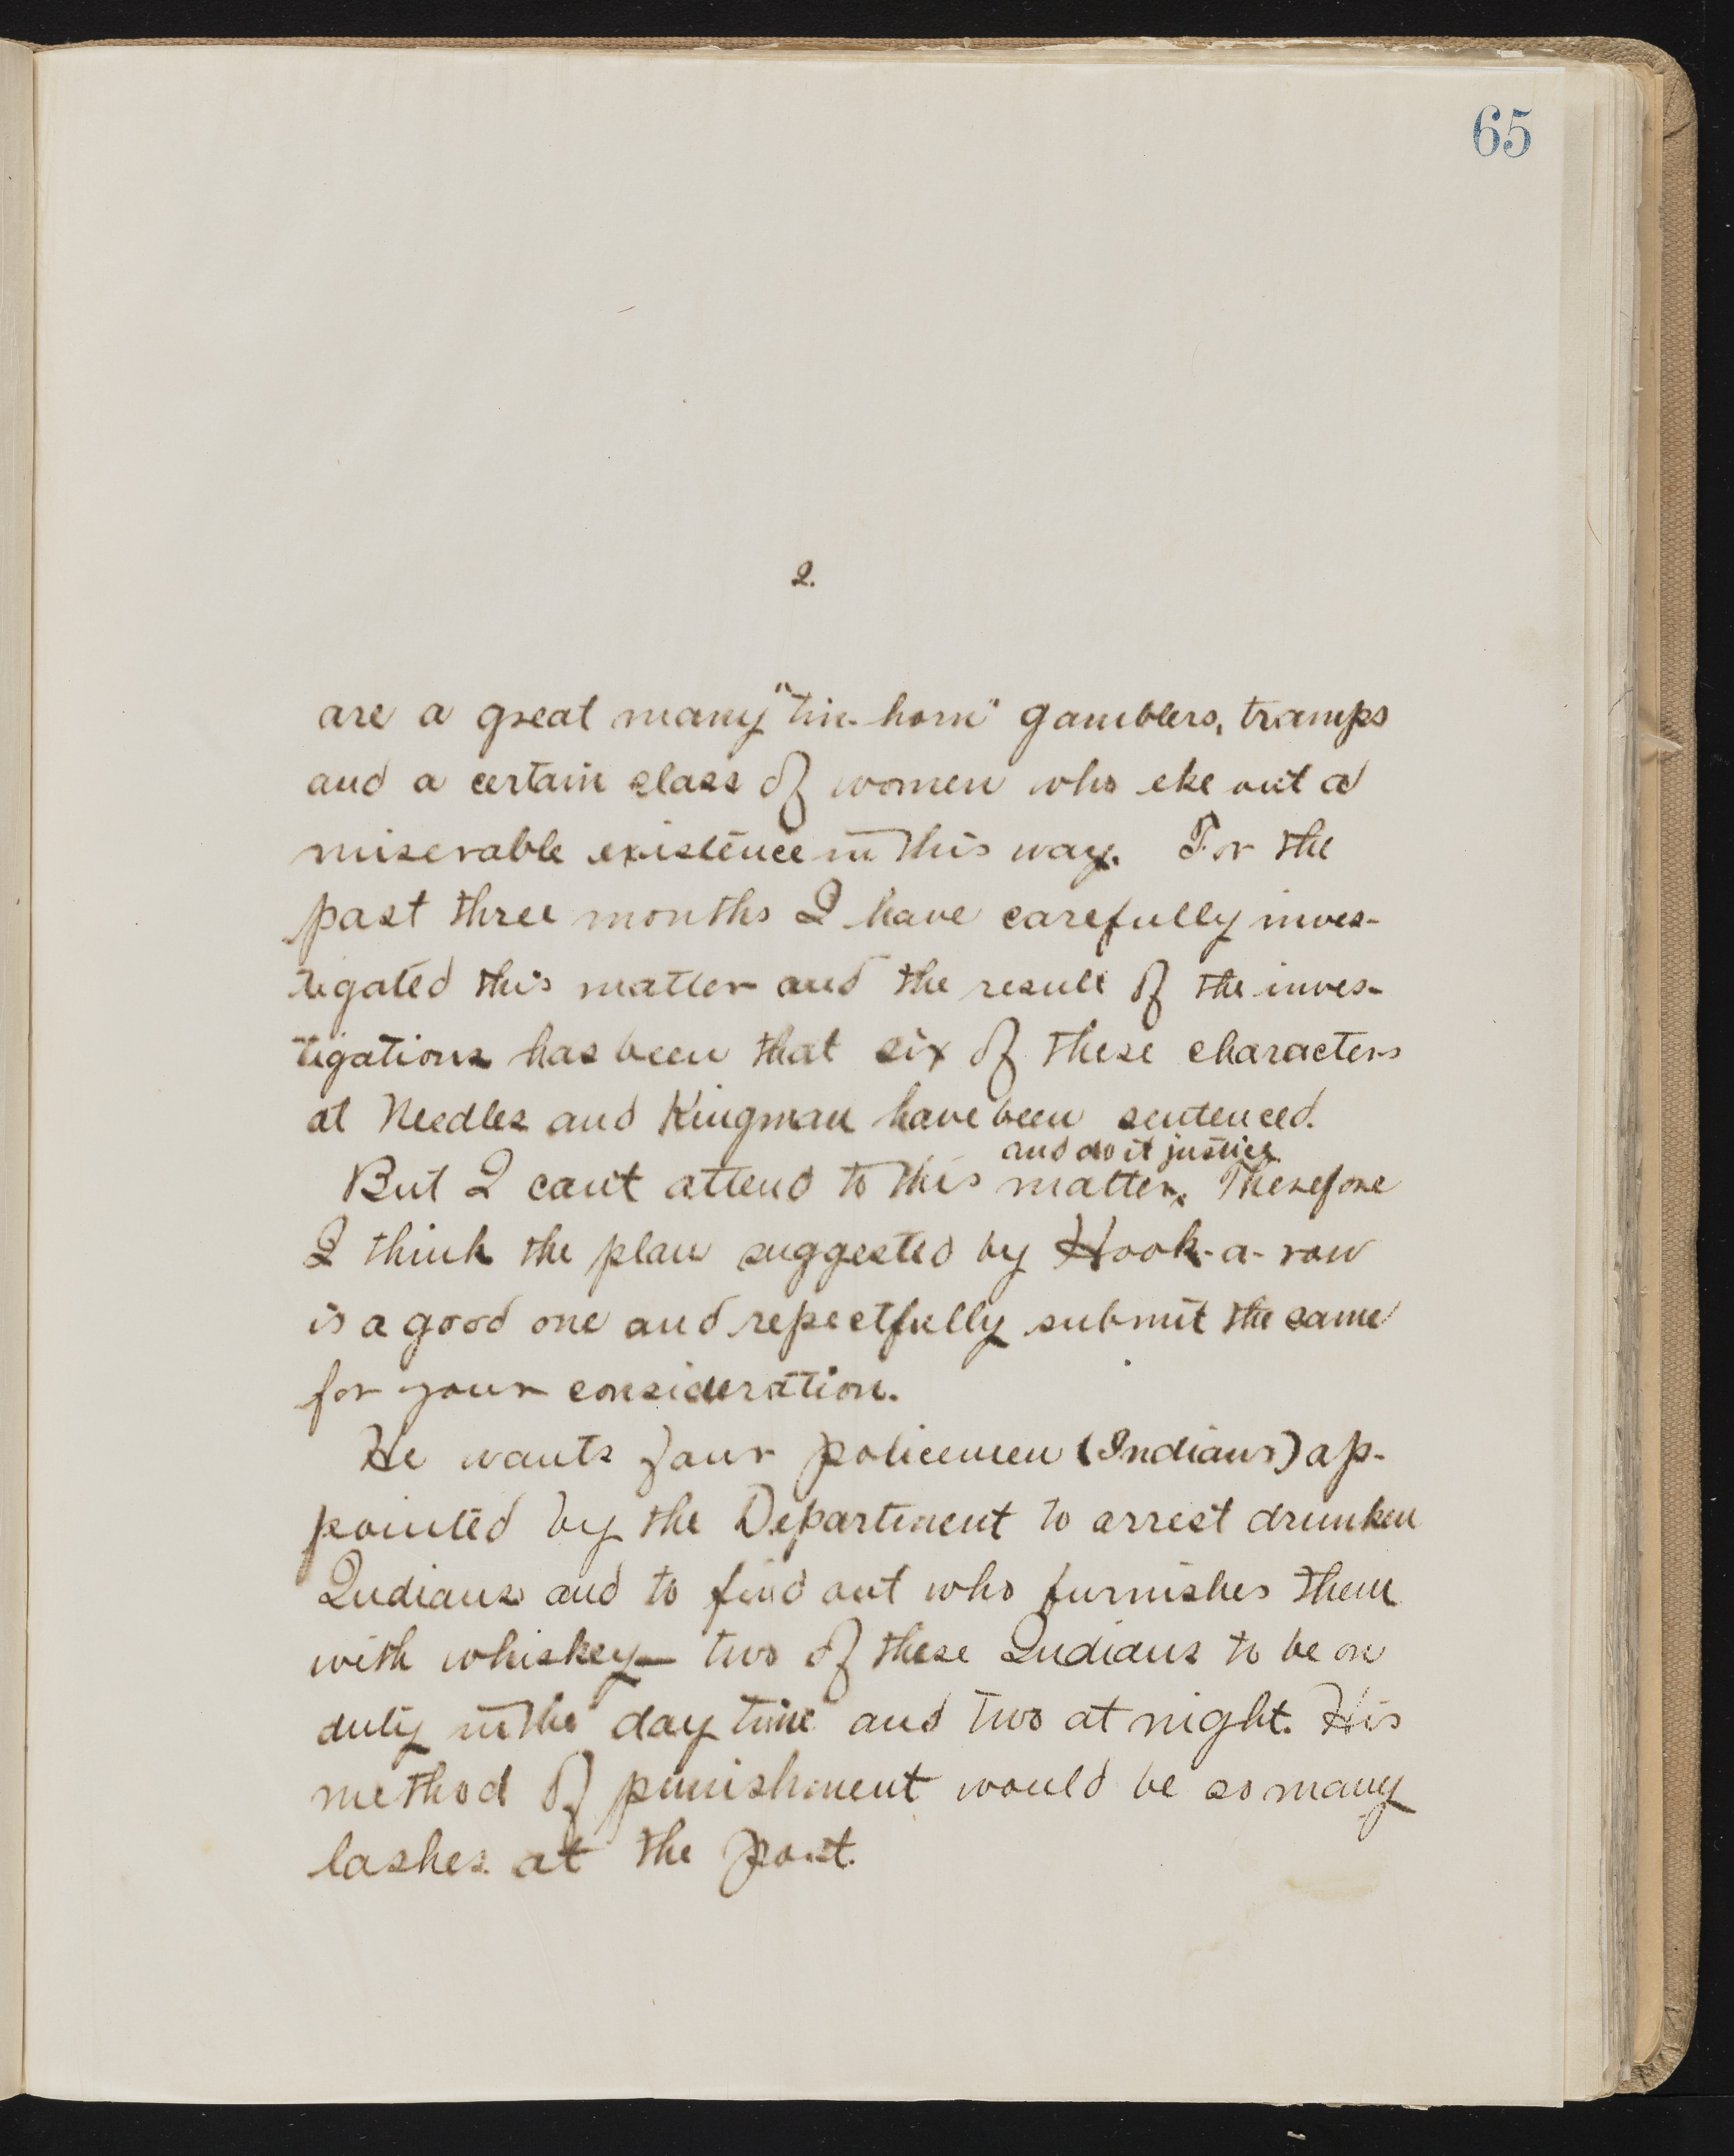 65
2.
are a great many "tin-horn" gamblers, tramps
and a certain class of women who eke out a
miserable existence in this way. For the
past three months I have carefully inves-
tigated this matter and the result of the inves-
tigations has been that six of these characters
at Needles and Kingman have been sentenced.
and do it justice
But I can't attend to this matter. Therefore
I think the plan suggested by Hook-a-row
is a good one and repectfully submit the same
for your consideration.
He wants four policemen (Indians) ap-
pointed by the Department to arrest drunken
Indians and to find out who furnishes them
with whiskey— two of these Indians to be on
duty in the day time and two at night. His
method of punishment would be so many
lashes at the post.